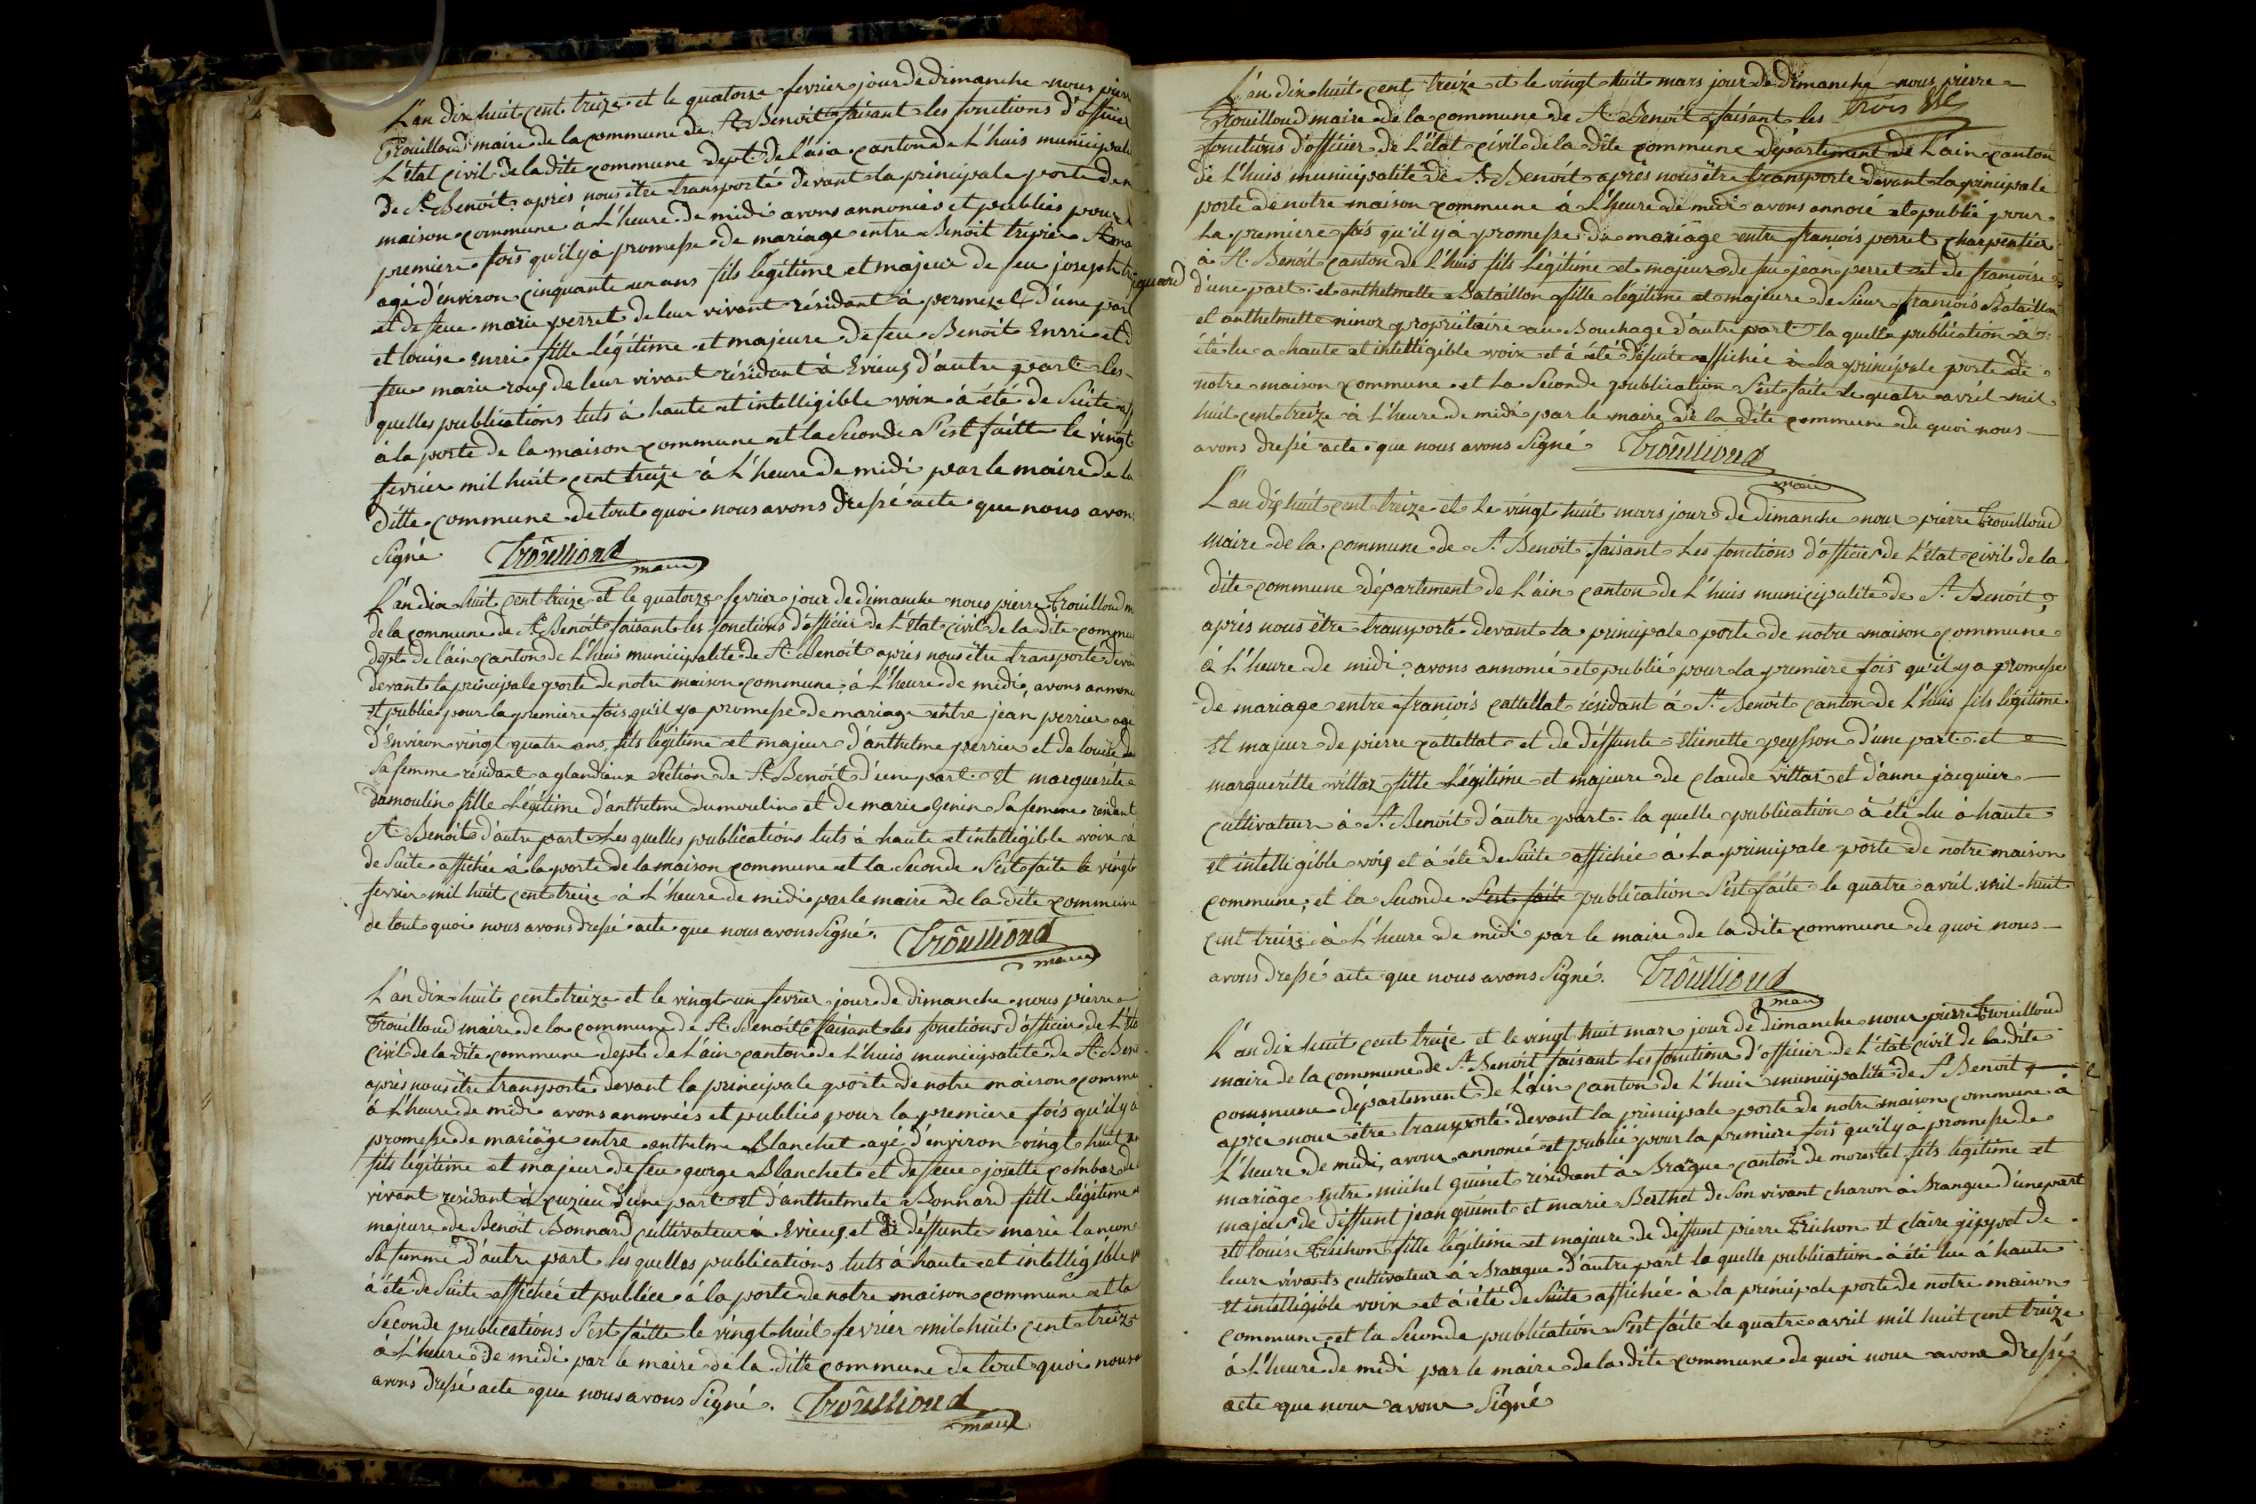 L'an dix huit cent treize et le quatorze fevrier jour de dimanche nous pierre
Trouilloud maire de la commune de St Benoit faisant les fonctions d'officier
L'état civil de la dite commune dept de l'ain canton de L'huis municipalité
de St Benoit après nous être transporté devant la principale porte de n
maison commune à L'heure de midi avons annoncés et publiés pour
premiere fois qu'il y à promesse de mariage entre Benoit tripier
agé d'environ cinquante un ans fils légitime et majeur de feu joseph
et de feue marie perret de leur vivant résidant à permezel d'une part
et louise Enrri fille légitime et majeure de feu Benoit Enrri et d
feu marie roux de leur vivant résidant à Evieux d'autre part les
quelles publications luts à haute et intelligible voix à été de Suite aff
à la porte de la maison commune et la Seconde S'est faitte le vingt
fevrier mil huit cent treize à L'heure de midi par le maire de la
ditte commune de tout quoi nous avons dressé acte que nous avons
Signé Troullioud
maire
L'an dix huit cent treize et le quatorze fevrier jour de dimanche nous pierre Trouilloud m
de la commune de St Benoit faisant les fonctions d'officier de L'état civil de la dite commu
dept de l'ain canton de L'huis municipalité de St Benoit après nous être transporté
devant la principale porte de notre maison commune à L'heure de midi avons annonc
et publié pour la premiere fois qu'il ya promesse de mariage entre jean perrier agé
d'Environ vingt quatre ans fils légitime et majeur d'anthelme perrier et de louise
Sa femme résidant a glandieux Section de St Benoit d'une part. et marguerite
dumoulin fille Légitime d'anthelme dumoulin et de marie Genin Sa femme residant
St Benoit d'autre part Les quelles publications luts à haute et intelligible voix à
de Suite affichée à la porte de la maison commune et la Seconde S'est faite le vingt
fevrier mil huit cent treize à L'heure de midi par le maire de la dite commune
de tout quoi nous avons dressé acte que nous avons Signé. Troullioud
maire
L'an dix huit cent treize et le vingt un fevrier jour de dimanche nous pierre
Trouilloud maire de la commune de St Benoit faisant les fonctions d'officier de L'éta
civil de la dite commune dept de L'ain canton de L'huis municipalité de St Ben
après nous être transporté devant la principale porte de notre maison commu
à L'heure de midi avons annoncés et publiés pour la premiere fois qu'il y à
promesse de mariäge entre anthelme Blanchet agé d'environ vingt huit
fils légitime et majeur de feu george Blanchet et de feue josette combaz de
vivant résidant à cuzieu d'une part et d'anthelmete Bonnard fille légitime
majeure de Benoit Bonnard cultivateur à Evieux et de déffunte marie lancon
Sa femme d'autre part les quelles publications luts à haute et intelligible v
à été de Suite affichée et publiée à la porte de notre maison commune et la
Seconde publications S'est faitte le vingt huit fevrier mil huit cent treize
à L'heure de midi par le maire de la ditte commune de tout quoi nous
avons dressé acte que nous avons Signé. Troullioud
maire
L'an dix huit cent treize et le vingt huit mars jour de dimanche nous pierre
Trouilloud maire de la commune de St Benoit faisant les trois
fonctions d'officier de L'état civil de la dite commune département de L'ain canton
de L'huis municipalité de St Benoit après nous être transporté devant la principale
porte de notre maison commune à L'heure de midi avons annoncé et publié pour
La premiere fois qu'il y à promesse de mariage entre françois perret charpentier
à St Benoit canton de L'huis fils Légitime et majeur de feu jean perret et de francoise
d'une part. et anthelmette Bataillon fille légitime et majeure de Sieur françois Bataillon
et anthelmette ninoz propriétaire au Bouchage d'autre part la quelle publication à
été lu a haute et intelligible voix et à été desuite affichée à la principale porte de
notre maison commune et La Seconde publication S'est faite le quatre avril mil
huit cent treize à L'heure de midi par le maire de la dite commune de quoi nous
avons dressé acte que nous avons Signé Troullioud
maire
L'an dix huit cent treize et le vingt huit mars jour de dimanche nous pierre Trouilloud
maire de la commune de St Benoit faisant Les fonctions d'officier de L'état civil de la
dite commune département de L'ain canton de L'huis municipalité de St Benoit
après nous être transporté devant la principale porte de notre maison commune
à L'heure de midi avons annoncé et publié pour La premiere fois qu'il y a promesse
de mariage entre françois cattellat résidant à St Benoit canton de L'huis fils légitime
Et majeur de pierre cattellat et de déffunte Etienette peysson d'une part et
marguerite villaz fille Légitime et majeure de claude villaz et d'anne jacquier
cultivateur à St Benoit d'autre part. la quelle publication à été lu à haute
et intelligible voix et à été de Suite affichée à La principale porte de notre maison
commune, et la Seconde S'est faite publication S'est faite le quatre avril mil huit
cent treize à L'heure de midi par le maire de la dite commune de quoi nous
avons dressé acte que nous avons Signé. Troullioud
maire
L'an dix huit cent treize et le vingt huit mars jour de dimanche nous pierre Trouilloud
maire de la commune de St Benoit faisant les fonctions d'officier de L'état civil de la dite
commune département de L'ain canton de L'huis municipalité de St Benoit
après nous être transporté devant la principale porte de notre maison commune à
L'heure de midi, avons annoncé et publié pour la premiere fois qu'il y à promesse de
mariäge entre michel quinet résidant à Brangue canton de morestel fils légitime et
majeur de déffunt jean quinet et marie Berthet de Son vivant charon à Brangue d'une part
et louise Trichon fille légitime et majeure de déffunt pierre Trichon et claire gippet de
leur vivants cultivateur à Brangue d'autre part la quelle publication à été lue à haute
et intelligible voix et à été de Suite affichée à la principale porte de notre maison
commune et la Seconde publication S'est faite le quatre avril mil huit cent treize
à L'heure de midi par le maire de la dite commune de quoi nous avons dressé
acte que nous avons Signé